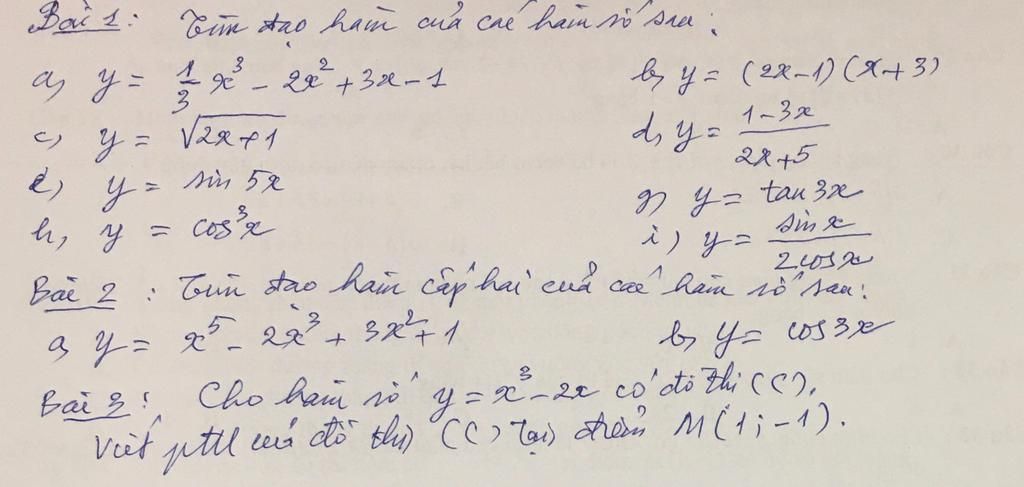 Bài 1: Tìm đạo hàm của các hàm số sau:
a, y = 1/3 x³ - 2x² + 3x - 1 b, y = (2x-1)(x+3)
c, y = √(2x+1) d, y = (1-3x)/(2x+5)
e, y = sin 5x g, y = tan 3x
h, y = cos³x i, y = sin x/(2cos x)
Bài 2: Tìm đạo hàm cấp hai của các hàm số sau:
a, y = x⁵ - 2x³ + 3x² + 1 b, y = cos 3x
Bài 3: Cho hàm số y = x³ - 2x có đồ thị (C).
Viết pttt của đồ thị (C) tại điểm M(1; -1).